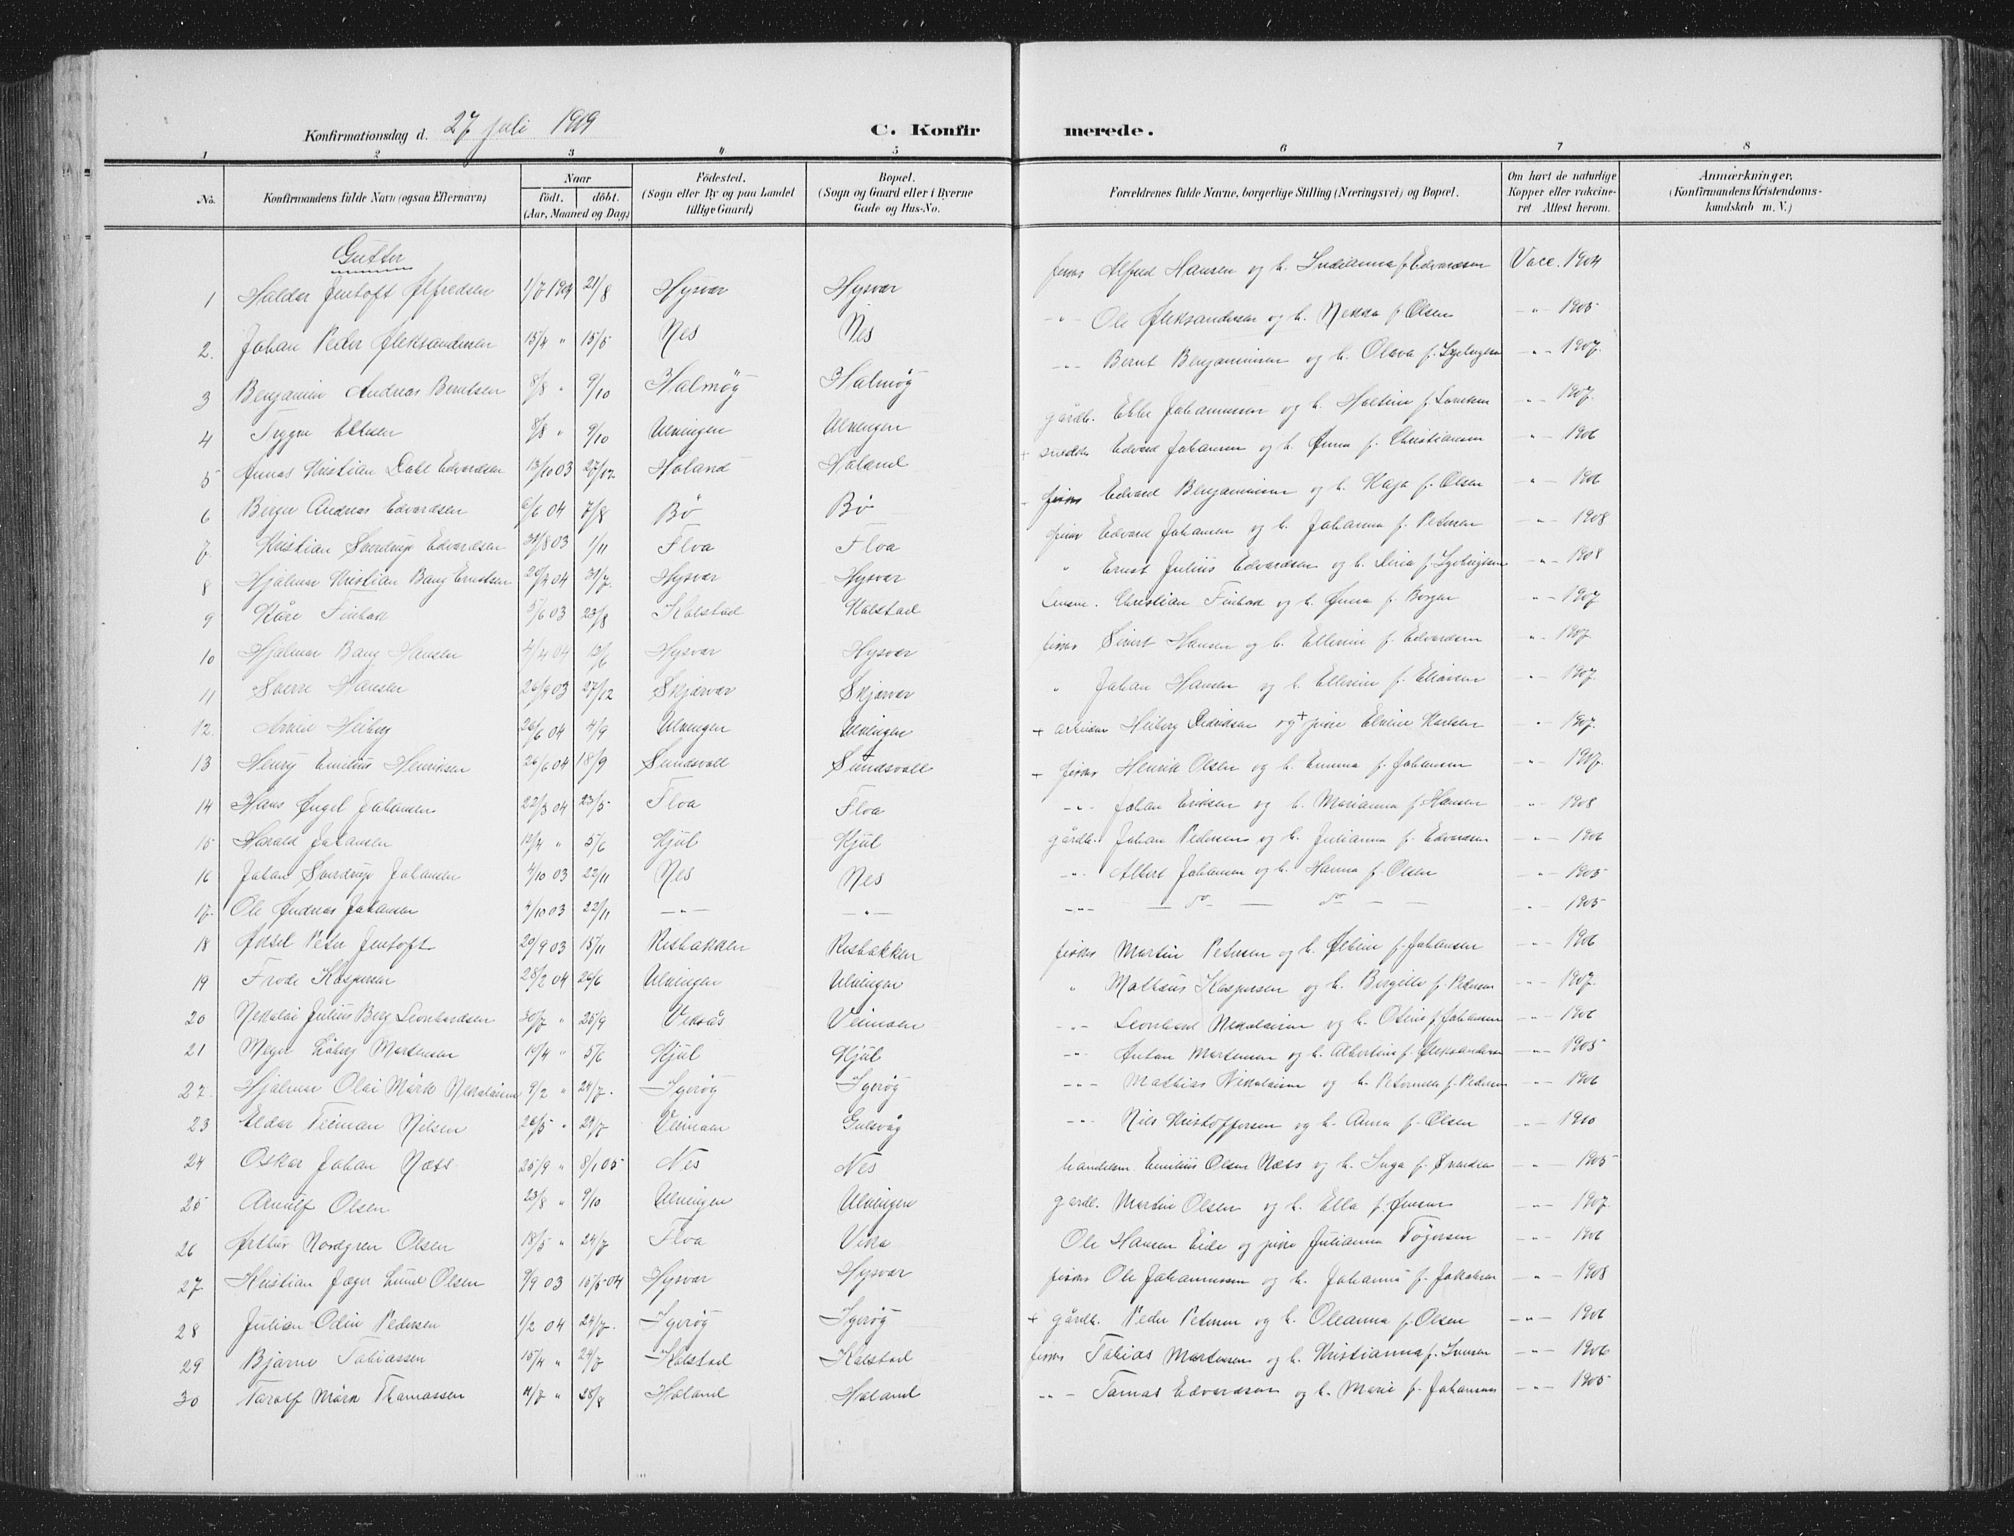 Konfirmationsdag d. 27 juli 1919
C. Konfirmerede.
1 2 3 4 5 6 7 8
No. Konfirmandens fulde Navn (ogsaa Efternavn) Naar født. døbt. (Aar, Maaned og Dag) Fødested. (Sogn eller By og paa Landet tillige Gaard) Bopæl. (Sogn og Gaard eller i Byerne Gade og Hus-No. Forældrenes fulde Navne, borgerlige Stilling (Næringsvei) og Bopæl. Om havt de naturlige Kopper eller vaccineret Attest herom. Anmærkninger. (Konfirmandens Kristendomskundskab m. V.)
Gutter
1 Haldor Jentoft Alfredsen 1/7 1904 21/8 Hysvær Hysvær fisker Alfred Hansen og h. f. Edvardsen Vacc. 1904
2. Johan Peder Aleksandersen 13/4 " 15/5 Nes Nes -"- Ole Aleksandersen og h. Nekka f. Olsen -"- 1905
3 Benjamin Andreas Berntsen 8/8 " 9/10 Halmøy Halmøy -"- Bernt Benjaminsen og h. Olava f. -"- 1907.
4 Trygve Ebbesen 8/8 " 9/10 Ulvingen Ulvingen gårdb. Ebbe Johannessen og h. f. -"- 1907.
5 Kristian Dahl Edvardsen 13/10 03 27/12 Høland Høland + Edvard Johansen og h. Anna f. Christiansen " 1906
6 Birger Andreas Edvardsen 6/6 04 7/8 Bø Bø fisker Edvard Benjaminsen og h. Kaja f. Olsen -"- 1906
7 Kristian Sverdrup Edvardsen 31/8 03 1/11 Flva Flva Edvard Johansen og h. Johanna f. Petersen -"- 1908
8 Hjalmar Kristian Bang Ernstsen 20/3 04 31/7 Hysvær Hysvær " Ernst Julius Edvardsen og h. f. -"- 1908
9 Kåre Finbak 5/6 03 23/8 Kalstad Kalstad Christian Finbak og h. Anna f. Borgen -"- 1907
10 Hjalmar Bang Hansen 4/4 04 13/6 Hysvær Hysvær fisker Sivert Hansen og h. Ellerine f. Edvardsen " 1907.
11 Sverre Hansen 26/9 03 27/12 Skjærvær Skjærvær " Johan Hansen og h. Ellerine f. " 1907.
12. Heiberg 26/6 04 4/9 Ulvingen Ulvingen + arbeider Heiberg Didriksen og + pige Karlsen " 1907.
13 Henry Emilius Henriksen 26/6 04 18/9 Sundsvoll Sundsvoll + fisker Henrik Olsen og h. Emma f. Johansen -"- 1907.
14 Hans Angel Johansen 22/3 04 23/5 Flva Flva -"- Johan Eriksen og h. Marianna f. Hansen -"- 1908
15 Harald Johansen 12/4 " 5/6 Kjul Kjul gårdb. Johan Pedersen og h. Julianna f. Edvardsen -"- 1906
16 Johan Sverdrup Johansen 4/10 03 22/11 Nes Nes -"- Albert Johansen og h. Hanna f. Olsen -"- 1905
17 Ole Andreas Johansen 4/10 03 22/11 -"- -"- -"- — do — do — — -"- 1905
18 Aksel Peter Jentoft 20/9 03 15/11 Risbakken Risbakken fisker Martin Petersen og h. Albine f. Johansen -"- 1906
19 Frode Kaspersen 28/2 04 26/6 Ulvingen Ulvingen " Mathæus Kaspersen og h. Bergitte f. Pedersen -"- 1907.
20 Nekolai Julius Berg Leonhardsen 30/7 " 25/9 Veksås Veimoen -"- Leonhard Nekolaisen og h. Oline f. Johansen -"- 1906
21 Løberg Martensen 10/4 " 5/6 Kjul Kjul -"- Anton Martensen og h. Albertine f. Aleksandersen -"- 1905
22. Hjalmar Olai Mørk Nekolaisen 9/2 " 24/7. Igerøy Igerøy -"- Mathias Nikolaisen og h. Petornella f. Pedersen -"- 1906
23 Eldar Nilsen 26/5 " 24/7 Veimoen Gulsvåg -"- Nils Kristoffersen og h. Anna f. Olsen -"- 1910
24 Oskar Johan Næss 25/9 " 8/1 05 Nes Nes handelsm. Emilius Olsen Næss og h. Inga f. -"- 1905
25 Arnulf Olsen 23/8 " 9/10 Ulvingen Ulvingen gårdb. Martin Olsen og h. Ella f. Jensen -"- 1907.
26 Arthur Nordgren Olsen 18/5 " 24/7 Flva Vika Ole Hansen Eide og pige Julianna Tøgersen -"- 1906
27. Kristian Jæger Lund Olsen 9/9 03 15/5 04 Hysvær Hysvær fisker Ole Johannessen og h. Johanna f. Jakobsen -"- 1908
28 Julian Odin Pedersen 1/2 04 24/7. Igerøy Igerøy + gårdb. Peder Petersen og h. Oleanna f. Olsen -"- 1906
29 Bjarne Tobiassen 15/4 " 24/7 Kalstad Kalstad fisker Tobias Martensen og h. Kristianna f. Iversen -"- 1906
30 Torolf Mørk Thomassen 4/7 " 28/8 Høland Høland -"- Tomas Edvardsen og h. Marie f. Johansen -"- 1905